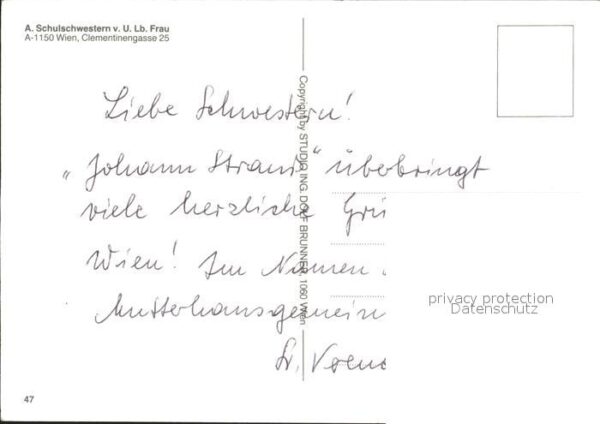 A. Schulschwestern v. U. Lb. Frau
A-1150 Wien, Clementinengasse 25
Liebe Schwestern!
„Johann Strauß“ überbringt
viele herzliche Grü
Wien! Im Namen
Mutterhausgemein
Sr.
Copyright by STUDIO ING. DOLF BRUNNER, 1060 Wien
privacy protection
Datenschutz
47